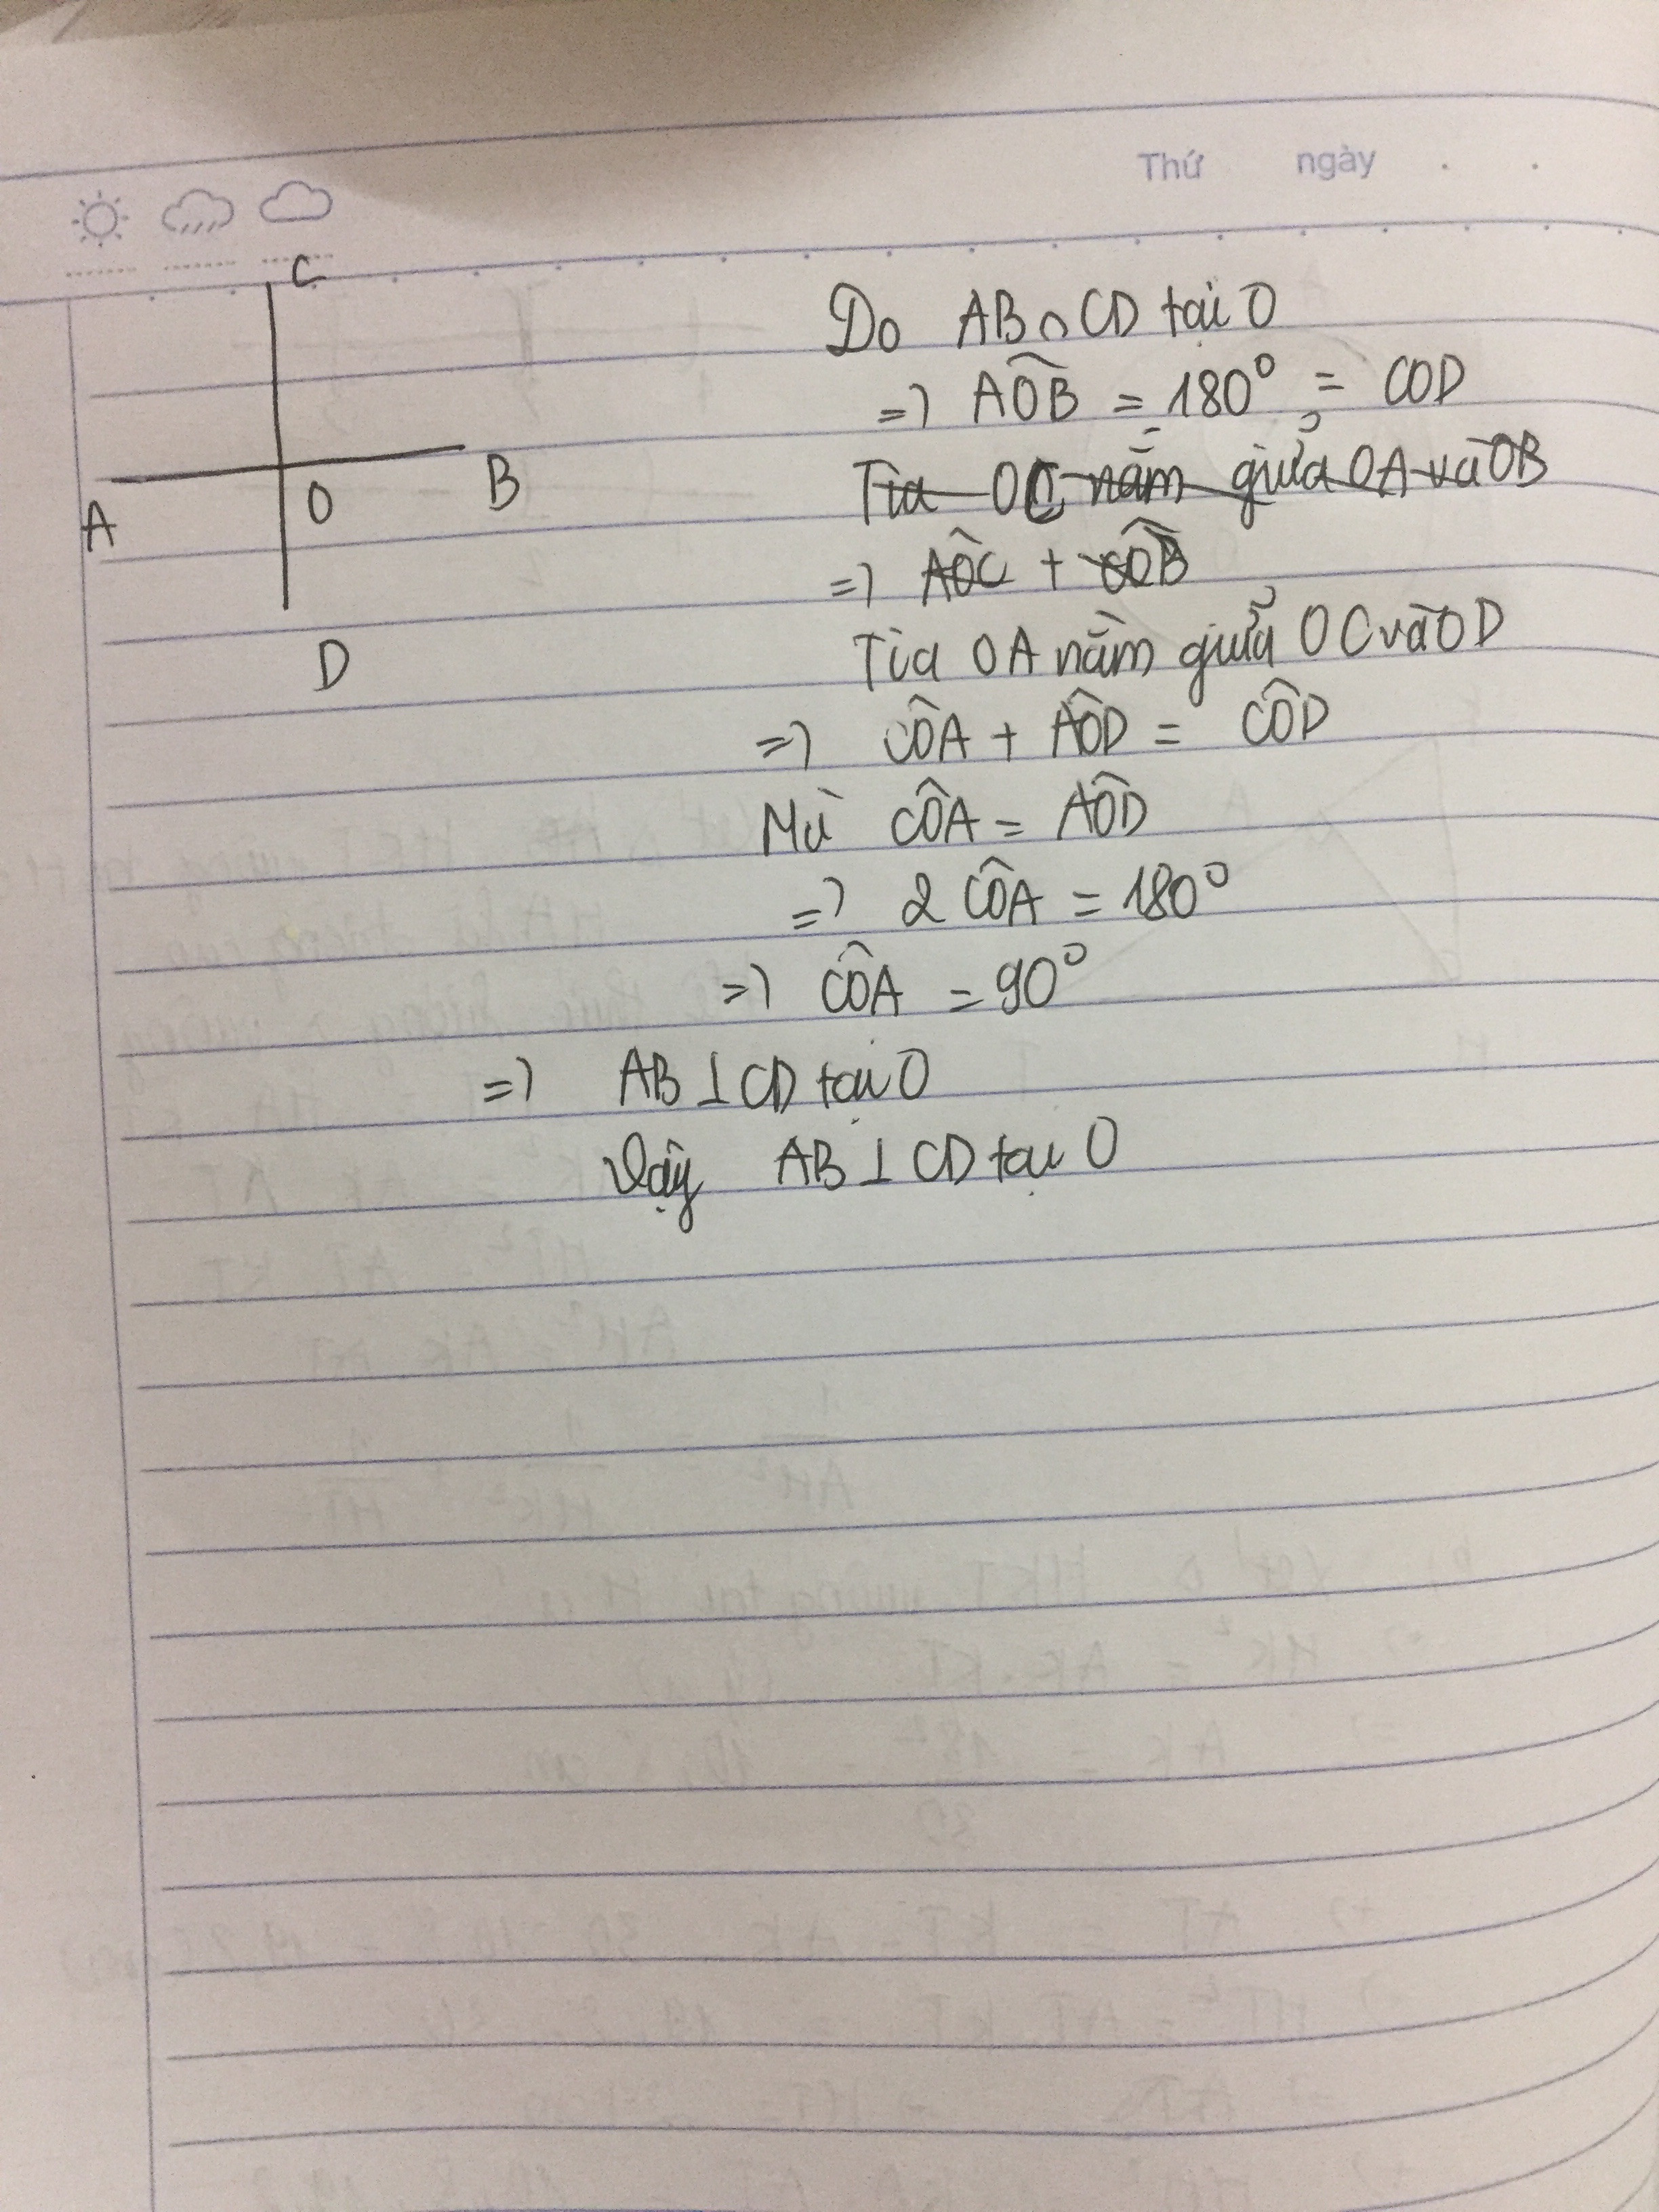 Thứ ngày . .
C
A O B
D
Do AB∩CD tại O
=) AÔB = 180° = COD
Tia OC nằm giữa OA và OB
=) AÔC + CÔB
Tia OA nằm giữa OC và OD
=) CÔA + AÔD = CÔD
Mà CÔA = AÔD
=) 2 CÔA = 180°
=) CÔA = 90°
=) AB⊥CD tại O
Vậy AB⊥CD tại O